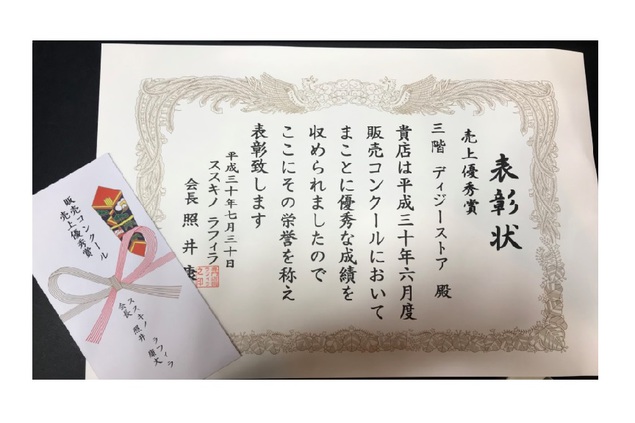 表彰状
売上優秀賞
三階 ディジーストア 殿
貴店は平成三十年六月度
販売コンクールにおいて
まことに優秀な成績を
収められましたので
ここにその栄誉を称え
表彰致します
平成三十年七月三十日
ススキノ ラフィラ
会長 照井
販売コンクール
売上優秀賞
ススキノ ラフィラ
会長 照井 康丈